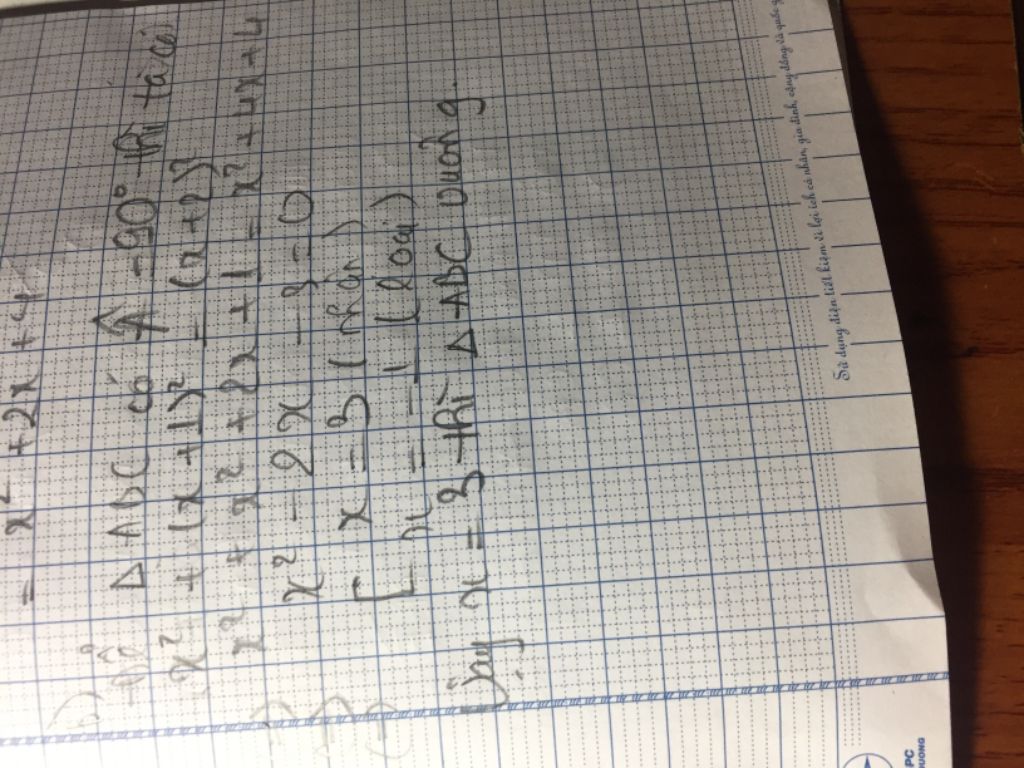 = x² + 2x + 1
b) Để ΔABC có Â = 90° thì ta có
x² + (x + 1)² = (x + 2)²
=) x² + x² + 2x + 1 = x² + 4x + 4
=) x² - 2x - 3 = 0
(=) [ x = 3 (nhận)
x = -1 (loại)
Vậy x = 3 thì ΔABC vuông.
Sử dụng điện tiết kiệm vì lợi ích cá nhân, gia đình, cộng đồng và quốc
PC
DUONG